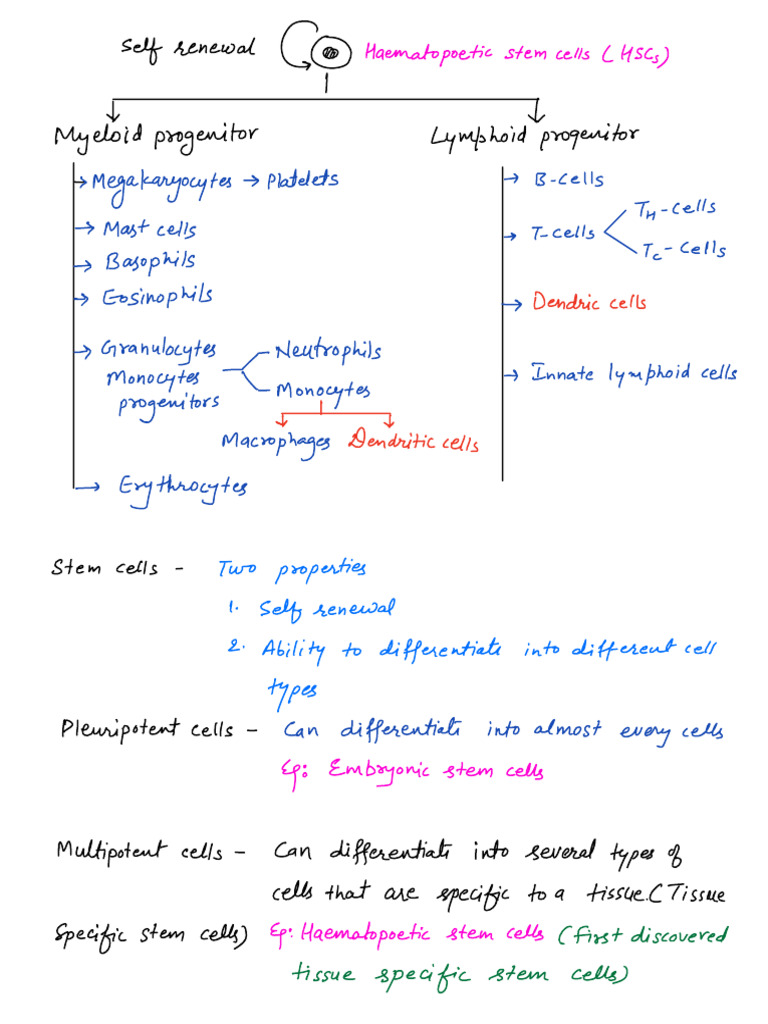 Self renewal Haematopoetic stem cells (HSCs)
Myeloid progenitor
Lymphoid progenitor
→ Megakaryocytes → Platelets
→ Mast cells
→ Basophils
→ Eosinophils
→ Granulocytes
Monocytes
progenitors
Neutrophils
Monocytes
Macrophages Dendritic cells
→ Erythrocytes
→ B-cells
→ T-cells
TH-cells
Tc-cells
→ Dendric cells
→ Innate lymphoid cells
Stem cells - Two properties
1. Self renewal
2. Ability to differentiate into different cell
types
Pleuripotent cells - Can differentiate into almost every cells
Eg: Embryonic stem cells
Multipotent cells - Can differentiate into several types of
cells that are specific to a tissue.(Tissue
Specific stem cells) Eg: Haematopoetic stem cells (first discovered
tissue specific stem cells)